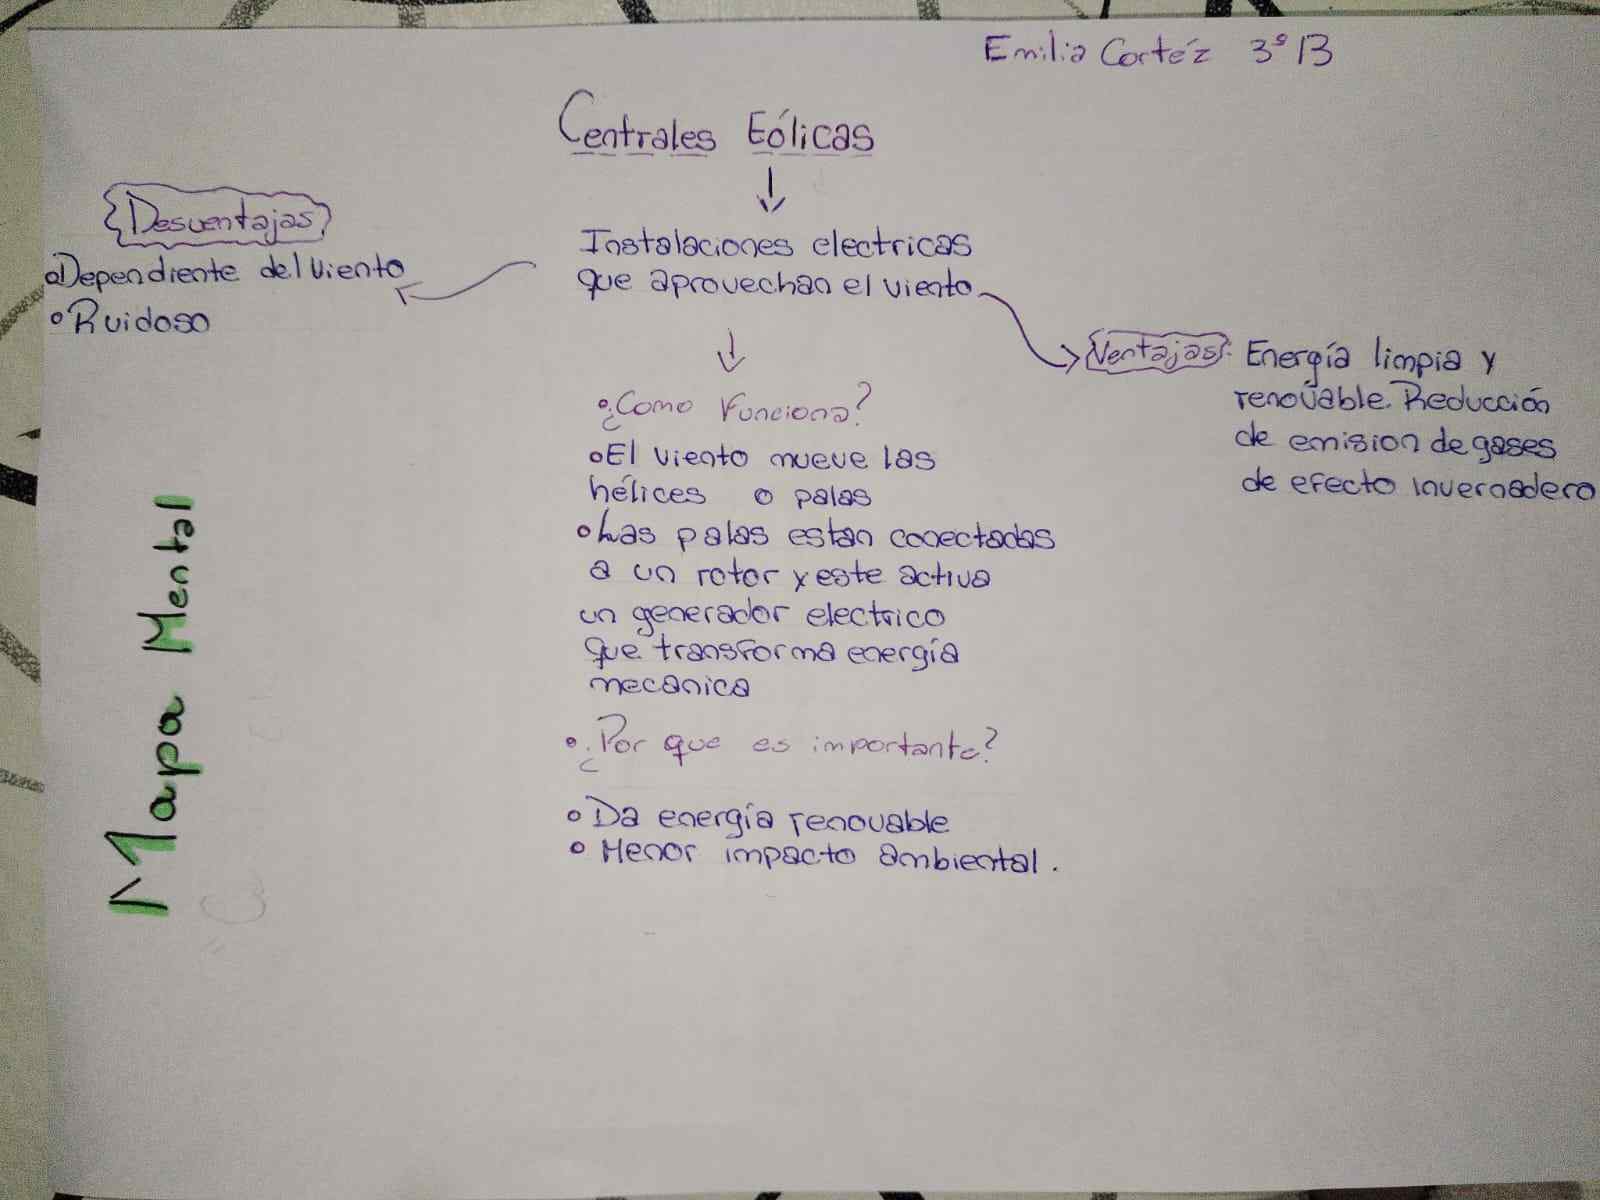 Emilia Cortéz 3º B
Centrales Eólicas
Desventajas
Dependiente del viento
Ruidoso
Instalaciones electricas
que aprovechan el viento
Ventajas: Energía limpia y
renovable. Reducción
de emision de gases
de efecto invernadero
¿Como Funciona?
El viento mueve las
hélices o palas
Las palas estan conectadas
a un rotor y este activa
un generador electrico
que transforma energía
mecanica
¿Por que es importante?
Da energía renovable
Menor impacto ambiental.
Mapa Mental